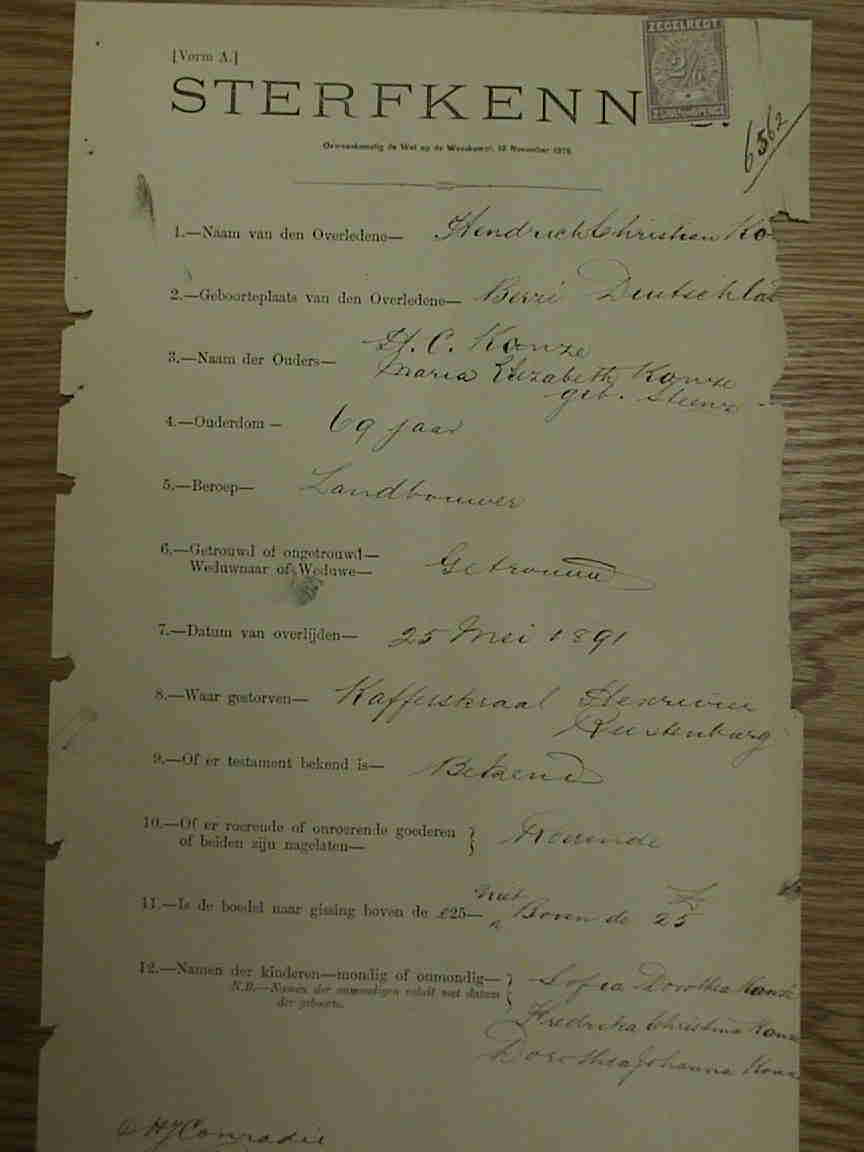 [Vorm A.]
ZEGELREGT
STERFKENN
6562
Overeenkomstig de Wet op de Weeskamer, 12 November 1870
1.—Naam van den Overledene— Hendrich Christien Ko
2.—Geboorteplaats van den Overledene— Deutschla
3.—Naam der Ouders— H. C. Konze
Maria Elizabeth Konze
geb.
4.—Ouderdom— 69 jaar
5.—Beroep— Landbouwer
6.—Getrouwd of ongetrouwd—
Weduwnaar of Weduwe— Getrouwd
7.—Datum van overlijden— 25 Mei 1891
8.—Waar gestorven— Kafferskraal Hexrivier
Rustenburg
9.—Of er testament bekend is— Bekend
10.—Of er roerende of onroerende goederen
of beiden zijn nagelaten— Roerende
11.—Is de boedel naar gissing boven de £25— niet Boven de £25
12.—Namen der kinderen—mondig of onmondig— Sofia Dorothea Konze
N.B.—Namen der onmondigen voluit met datum
der geboorte.
Fredricka Christina Konz
Dorothea Johanna Konz
HJ Conradie